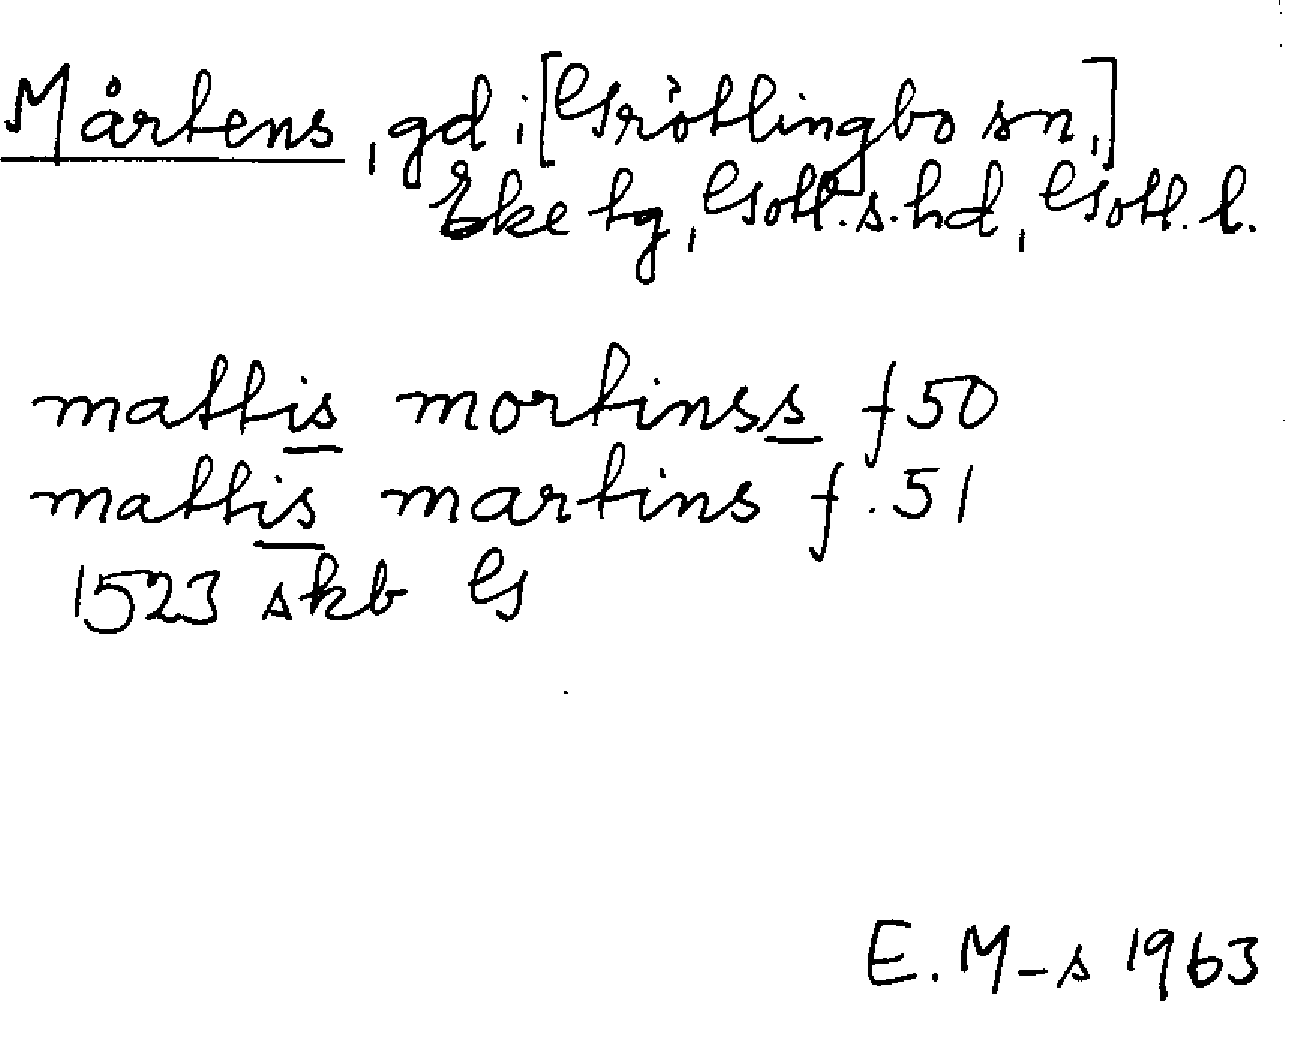 Mårtens, gd i [Grötlingbo sn,]
Eke tg, Gotl. s. hd, Gotl. l.
mattis mortinss f 50
mattis martins f. 51
1523 skb G
E. M-s 1963